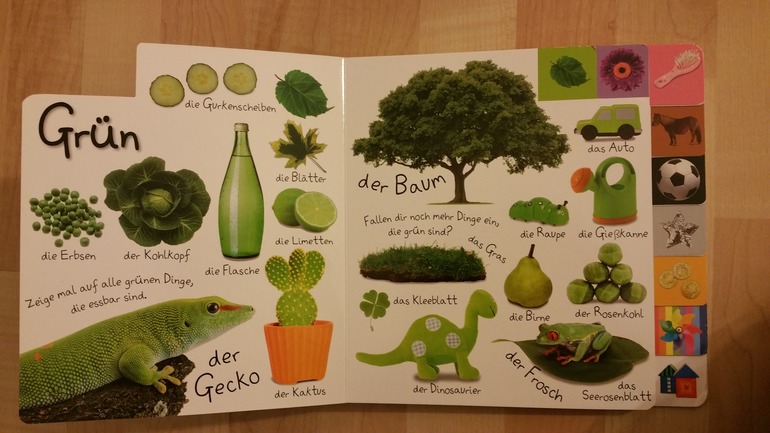 Grün
die Gurkenscheiben
die Blätter
die Erbsen
der Kohlkopf
die Flasche
die Limetten
Zeige mal auf alle grünen Dinge,
die essbar sind.
der
Gecko
der Kaktus
der Baum
das Auto
Fallen dir noch mehr Dinge ein,
die grün sind?
die Raupe
die Gießkanne
das Gras
das Kleeblatt
die Birne
der Rosenkohl
der Dinosaurier
der Frosch
das
Seerosenblatt